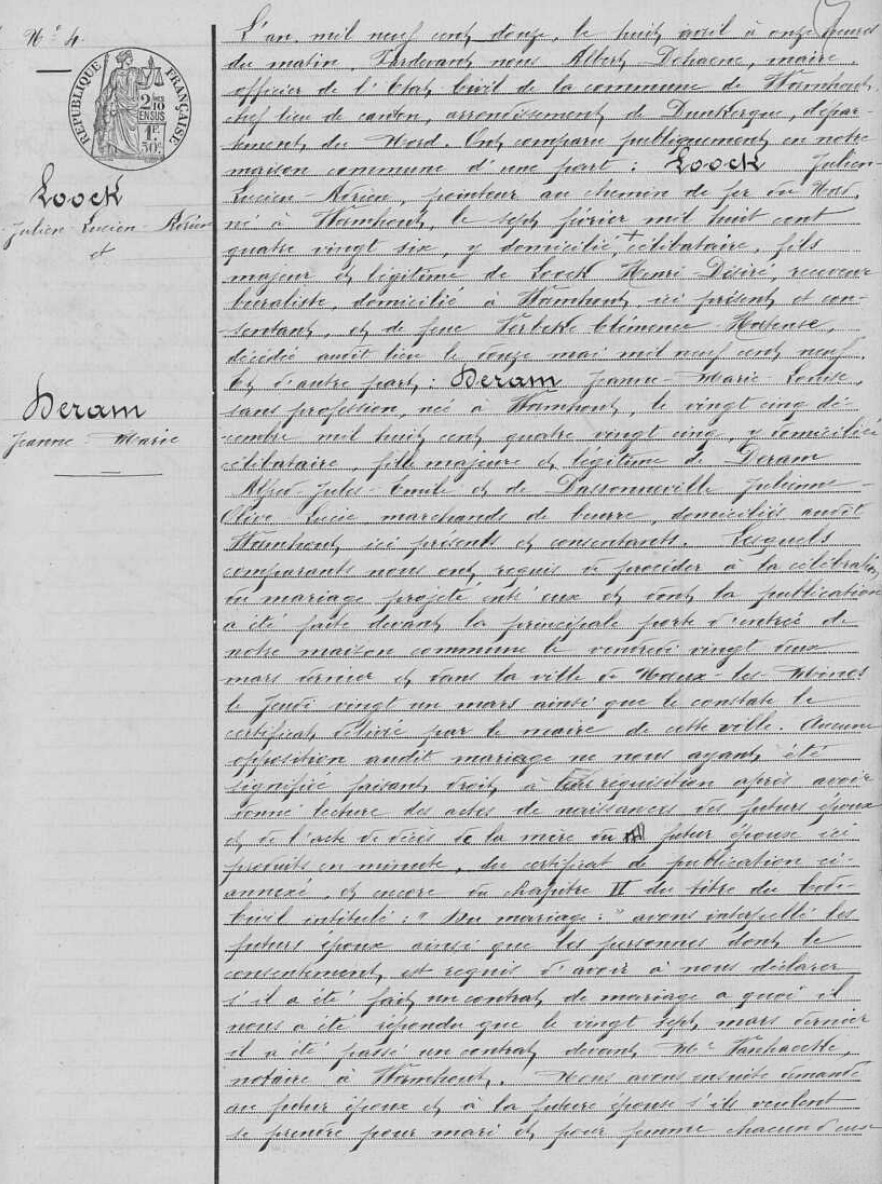 N° 4.
RÉPUBLIQUE FRANÇAISE
2/10 EN SUS
1F 50c
Loock
Julien-Lucien-Adrien
et
Deram
Jeanne-Marie
L'an mil neuf cent douze, le huit avril à onze heures
du matin, Pardevant nous Albert Dehaene, maire,
officier de l'Etat Civil de la commune de Wormhout,
chef lieu de canton, arrondissement de Dunkerque, dépar-
tement du Nord. Ont comparu publiquement en notre
maison commune d'une part : Loock Julien-
Lucien-Adrien, pointeur au chemin de fer du Nord,
né à Wormhout, le sept février mil huit cent
quatre vingt six, y domicilié, + célibataire, fils
majeur et légitime de Loock Henri-Désiré, receveur
buraliste, domicilié à Wormhout, ici présent et con-
sentant, et de feue Verbeke Clémence Hortense,
décédée audit lieu le douze mai mil neuf cent neuf.
Et d'autre part : Deram Jeanne-Marie Louise,
sans profession, née à Wormhout, le vingt cinq dé-
cembre mil huit cent quatre vingt cinq, y domiciliée
célibataire, fille majeure et légitime de Deram
Alfred-Jules-Emile et de Dassonneville Julienne-
Olive-Lucie, marchands de beurre, domiciliés audit
Wormhout, ici présents et consentants. Lesquels
comparants nous ont requis de procéder à la célébration
du mariage projeté entr'eux et dont la publication
a été faite devant la principale porte d'entrée de
notre maison commune le vendredi vingt deux
mars dernier et dans la ville de Nœux-les-Mines
le jeudi vingt un mars ainsi que le constate le
certificat délivré par le maire de cette ville. Aucune
opposition audit mariage ne nous ayant été
signifiée faisant droit à leur réquisition après avoir
donné lecture des actes de naissances des futurs époux
et de l'acte de décès de la mère du futur époux ici
produits en minute, du certificat de publication ci-
annexé, et encore du chapitre VI du titre du Code
Civil intitulé : "Du mariage :" avons interpellé les
futurs époux ainsi que les personnes dont le
consentement est requis d'avoir à nous déclarer
s'il a été fait un contrat de mariage a quoi il
nous a été répondu que le vingt sept mars dernier
il a été passé un contrat devant Me
notaire à Wormhout. Nous avons ensuite demandé
au futur époux et à la future épouse s'ils veulent
se prendre pour mari et pour femme chacun d'eux